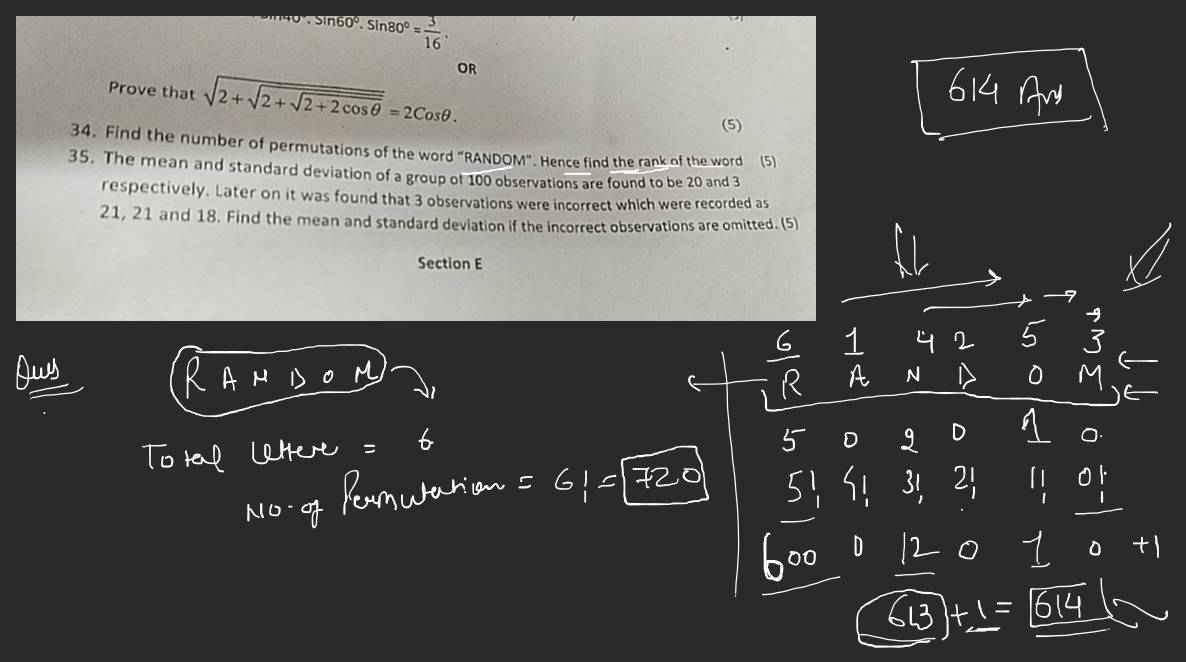 Sin40°. Sin60°. Sin80° = 3/16.
OR
Prove that √2+√2+√2+2cosθ = 2Cosθ.
(5)
34. Find the number of permutations of the word "RANDOM". Hence find the rank of the word (5)
35. The mean and standard deviation of a group of 100 observations are found to be 20 and 3
respectively. Later on it was found that 3 observations were incorrect which were recorded as
21, 21 and 18. Find the mean and standard deviation if the incorrect observations are omitted. (5)
Section E
614 Ans
Ans
R A N D O M
Total letters = 6
No. of Permutation = 6! = 720
6 1 4 2 5 3
R A N D O M
5 0 2 0 1 0
5! 4! 3! 2! 1! 0!
600 0 12 0 1 0 +1
613 + 1 = 614